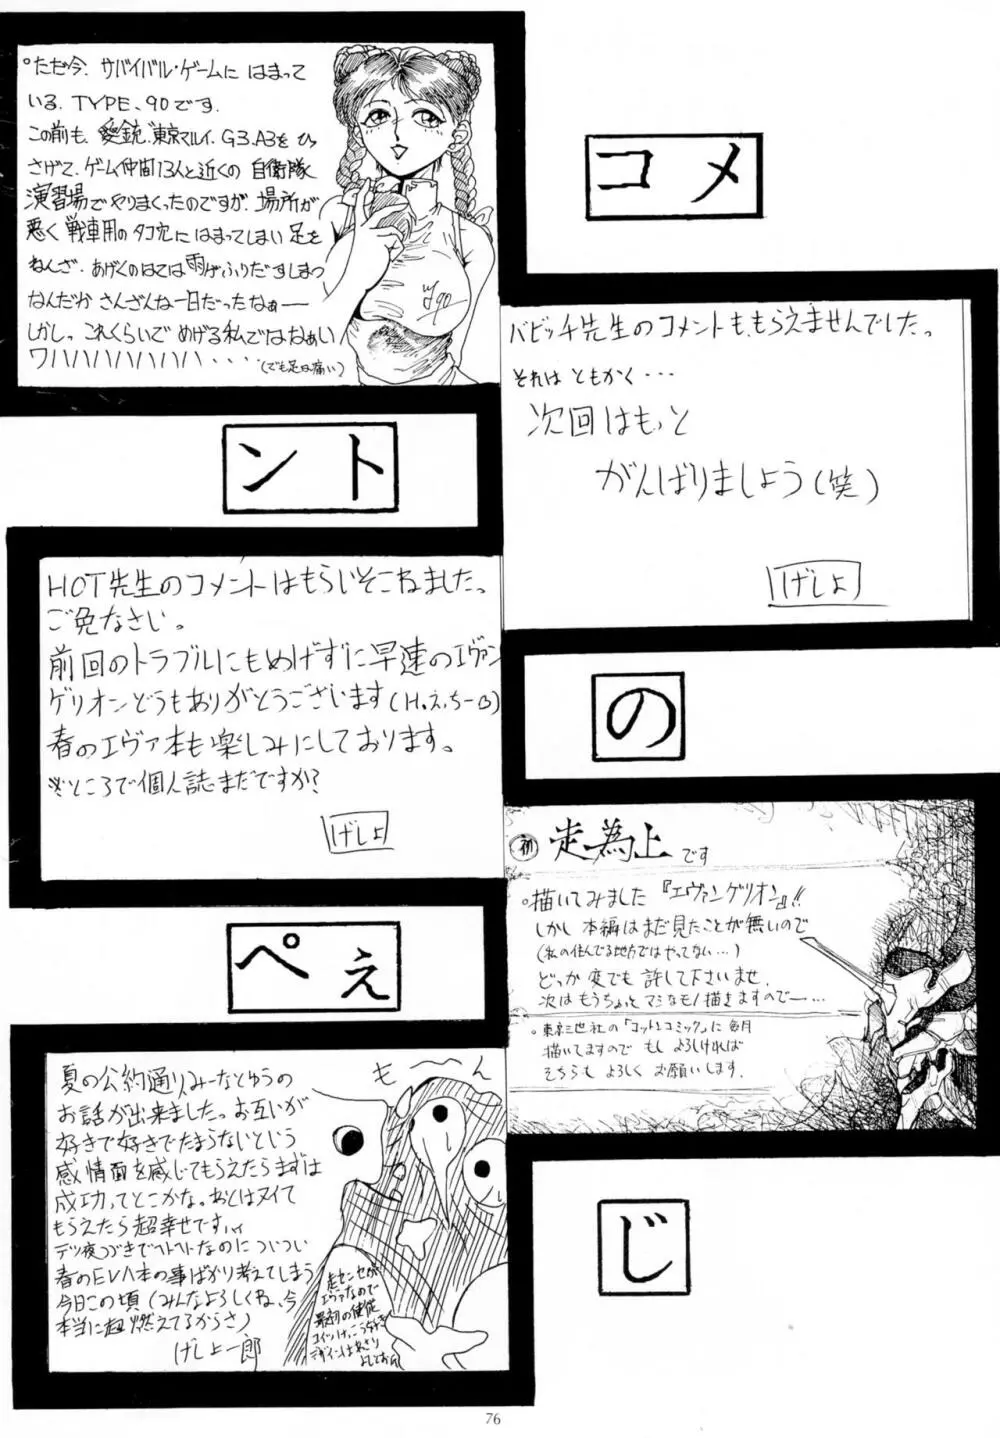 コメ
ント
の
ぺぇ
じ
°ただ今、サバイバル・ゲームに はまって
いる、TYPE、90です。
この前も、愛銃、東京マルイ、G3、A3を ひっ
さげて、ゲーム仲間13人と近くの 自衛隊
演習場でやりまくったのですが、場所が
悪く 戦車用のタコ穴に はまってしまい 足を
ねんざ、あげくのはては雨がふりだすしまつ
なんだか さんざんな一日だったなぁー
しかし、これくらいで めげる私ではなぁい
ワハハハハハハハハハ・・・・(でも足は痛い)
バビッチ先生のコメントも、もらえませんでした。
それは ともかく・・・
次回はもっと
がんばりましょう(笑)
げしょ
HOT先生のコメントはもらいそこねました。
ご免なさい。
前回のトラブルにもめげずに早速のエヴァン
ゲリオンどうもありがとうございます(H、え、ち-B)
春のエヴァ本も楽しみにしております。
※ところで個人誌まだですか?
げしょ
初 走為上です
°描いてみました『エヴァンゲリオン』!!
しかし 本編はまだ見たことが無いので
(私の住んでる地方ではやってない・・・)
どっか変でも 許して下さいませ、
次は もうちょっと マシなモノ描きますのでー・・・
°東京三世社の「コットンコミック」に 毎月
描いてますので もし よろしければ
そちらも よろしく お願いします。
夏の公約通りみーなとゆうの
お話が出来ました。お互いが
好きで好きでたまらないという
感情面を感じてもらえたらまずは
成功ってとこかな。あとはヌイて
もらえたら超幸せですハイ
デッ夜つづきでヘトヘトなのについつい
春のEVA本の事ばかり考えてしまう
今日この頃(みんなよろしくね、今
本当に超燃えてるからさ)
げしょ一郎
も〜ん
走センセが
エヴァなので
最初の使徒
76